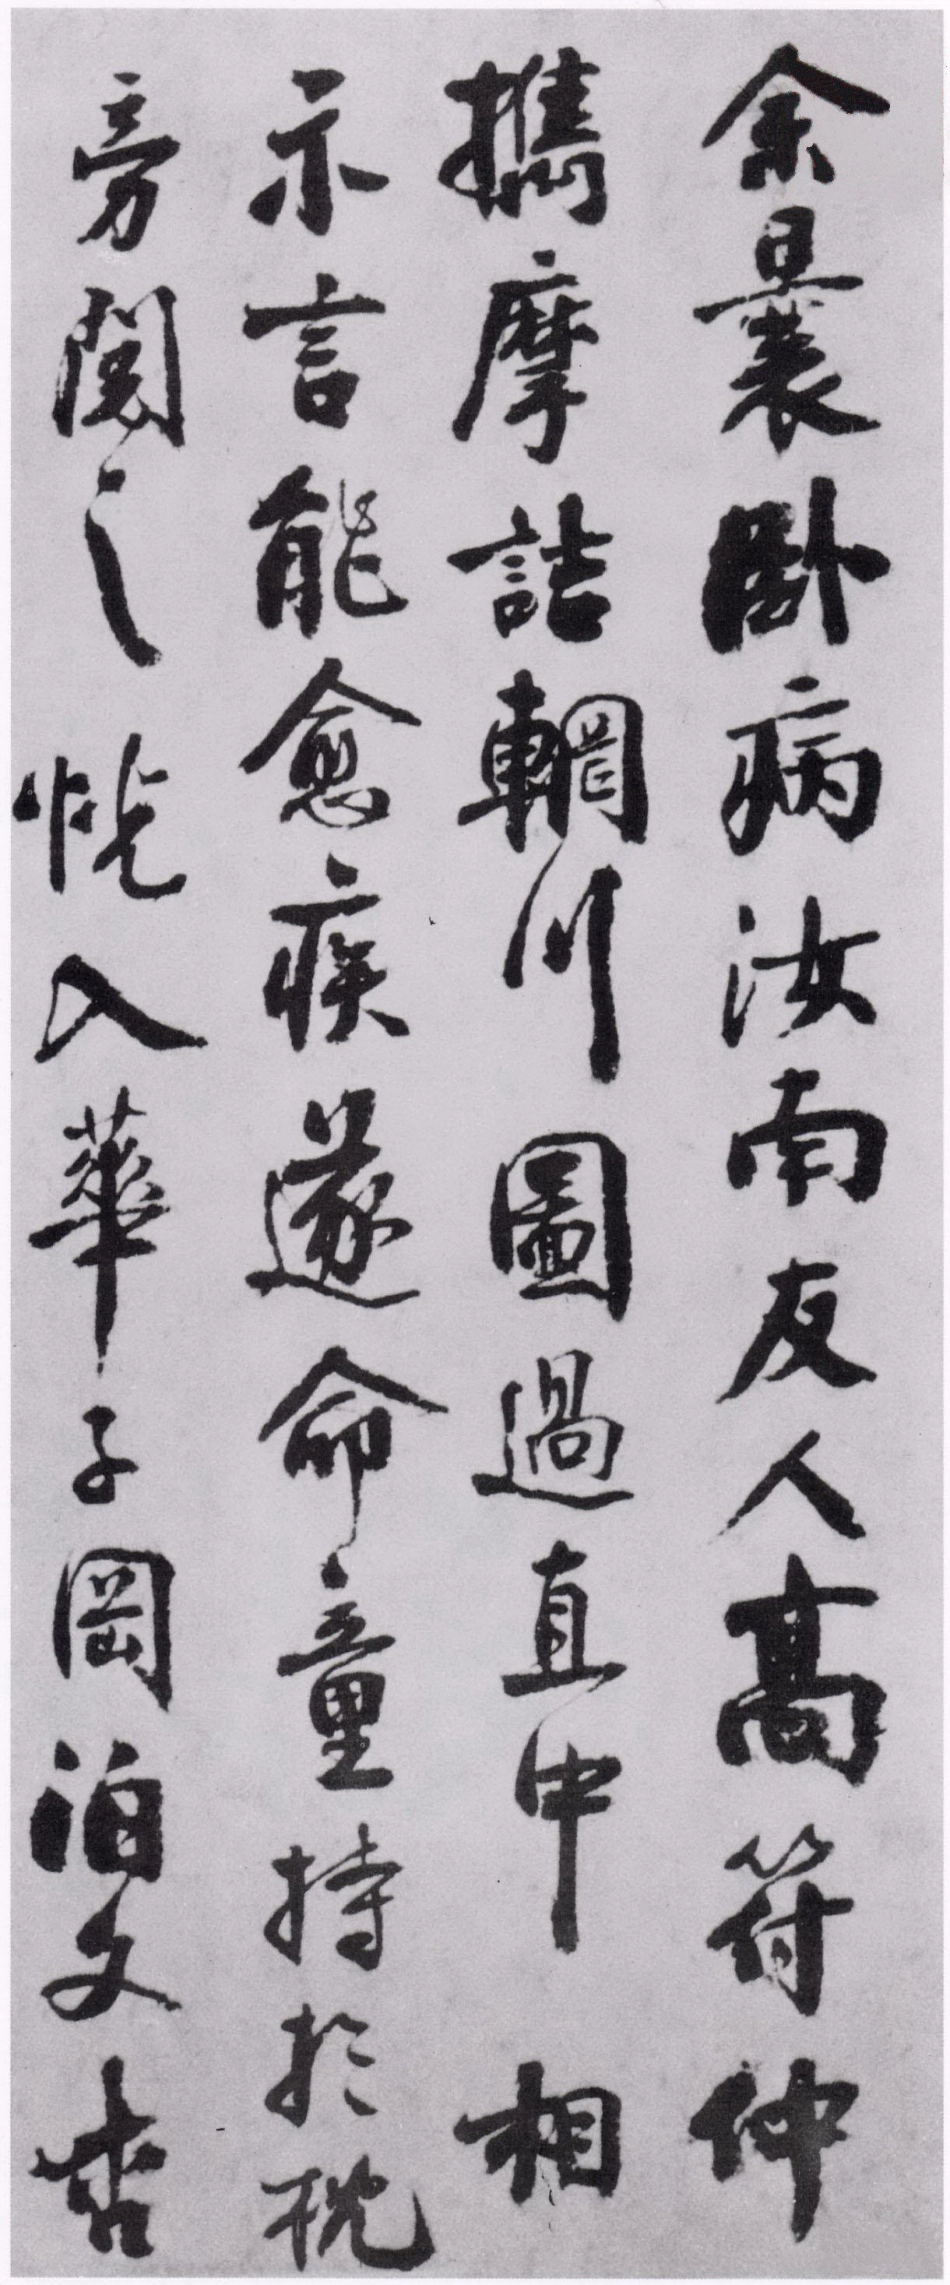 余曩卧病汝南友人高符仲
攜摩詰輞川圖過直中相
示言能愈疾遂命童持於枕
旁閱之恍入華子岡泊文杏